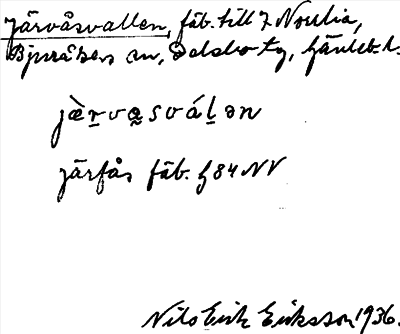 Järvåsvallen, fäb. till 7 Norrlia,
Bjuråkers sn, Delsbo tg, Gävleb. l.
jæ̀r̠va̠svál̠ən
järfås fäb. G84NV
Nils Erik Eriksson 1936.